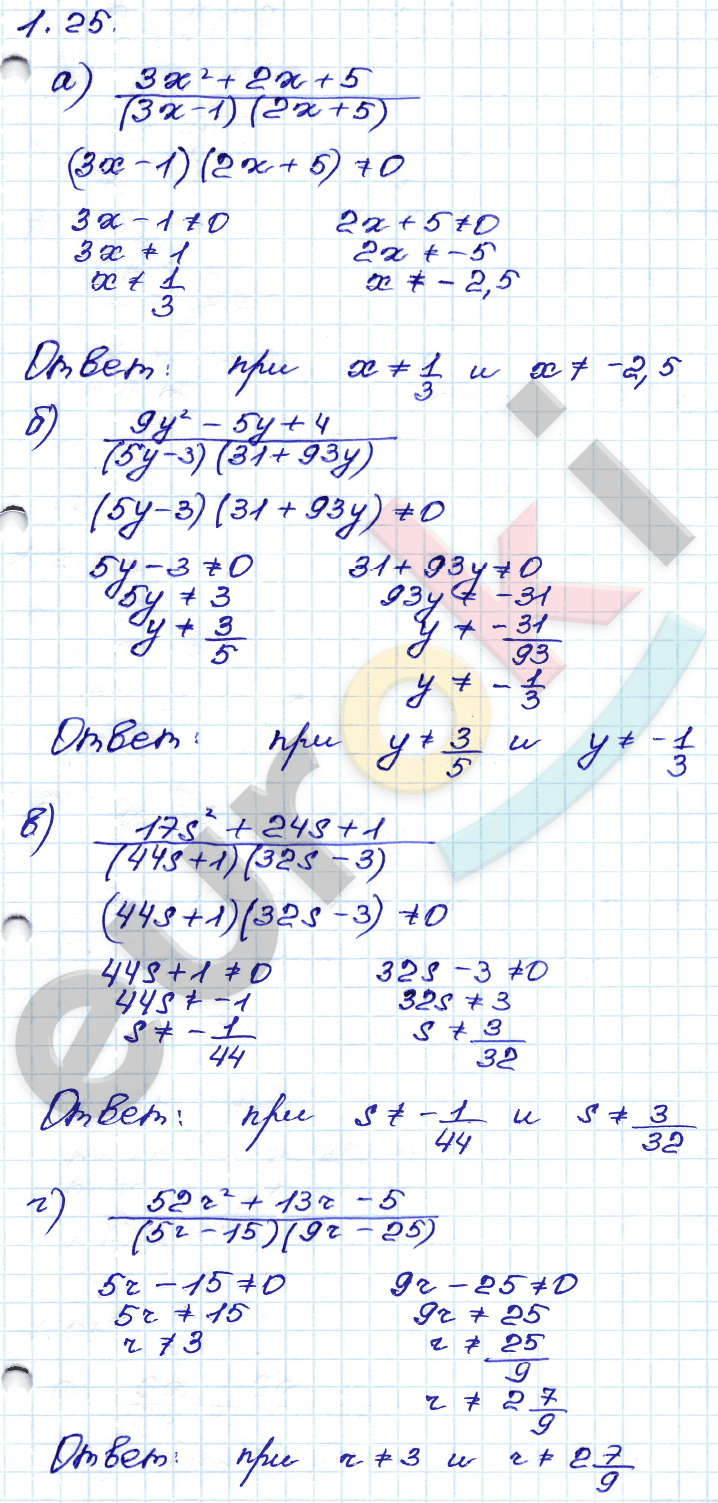 1.25.
а) (3x² + 2x + 5) / ((3x-1)(2x+5))
(3x-1)(2x+5) ≠ 0
3x - 1 ≠ 0   2x + 5 ≠ 0
3x ≠ 1   2x ≠ -5
x ≠ 1/3   x ≠ -2,5
Ответ: при x ≠ 1/3 и x ≠ -2,5
б) (9y² - 5y + 4) / ((5y-3)(31+93y))
(5y-3)(31+93y) ≠ 0
5y - 3 ≠ 0   31 + 93y ≠ 0
5y ≠ 3   93y ≠ -31
y ≠ 3/5   y ≠ -31/93
y ≠ -1/3
Ответ: при y ≠ 3/5 и y ≠ -1/3
в) (17s² + 24s + 1) / ((44s+1)(32s-3))
(44s+1)(32s-3) ≠ 0
44s + 1 ≠ 0   32s - 3 ≠ 0
44s ≠ -1   32s ≠ 3
s ≠ -1/44   s ≠ 3/32
Ответ: при s ≠ -1/44 и s ≠ 3/32
г) (52r² + 13r - 5) / ((5r-15)(9r-25))
5r - 15 ≠ 0   9r - 25 ≠ 0
5r ≠ 15   9r ≠ 25
r ≠ 3   r ≠ 25/9
r ≠ 2 7/9
Ответ: при r ≠ 3 и r ≠ 2 7/9
euroki